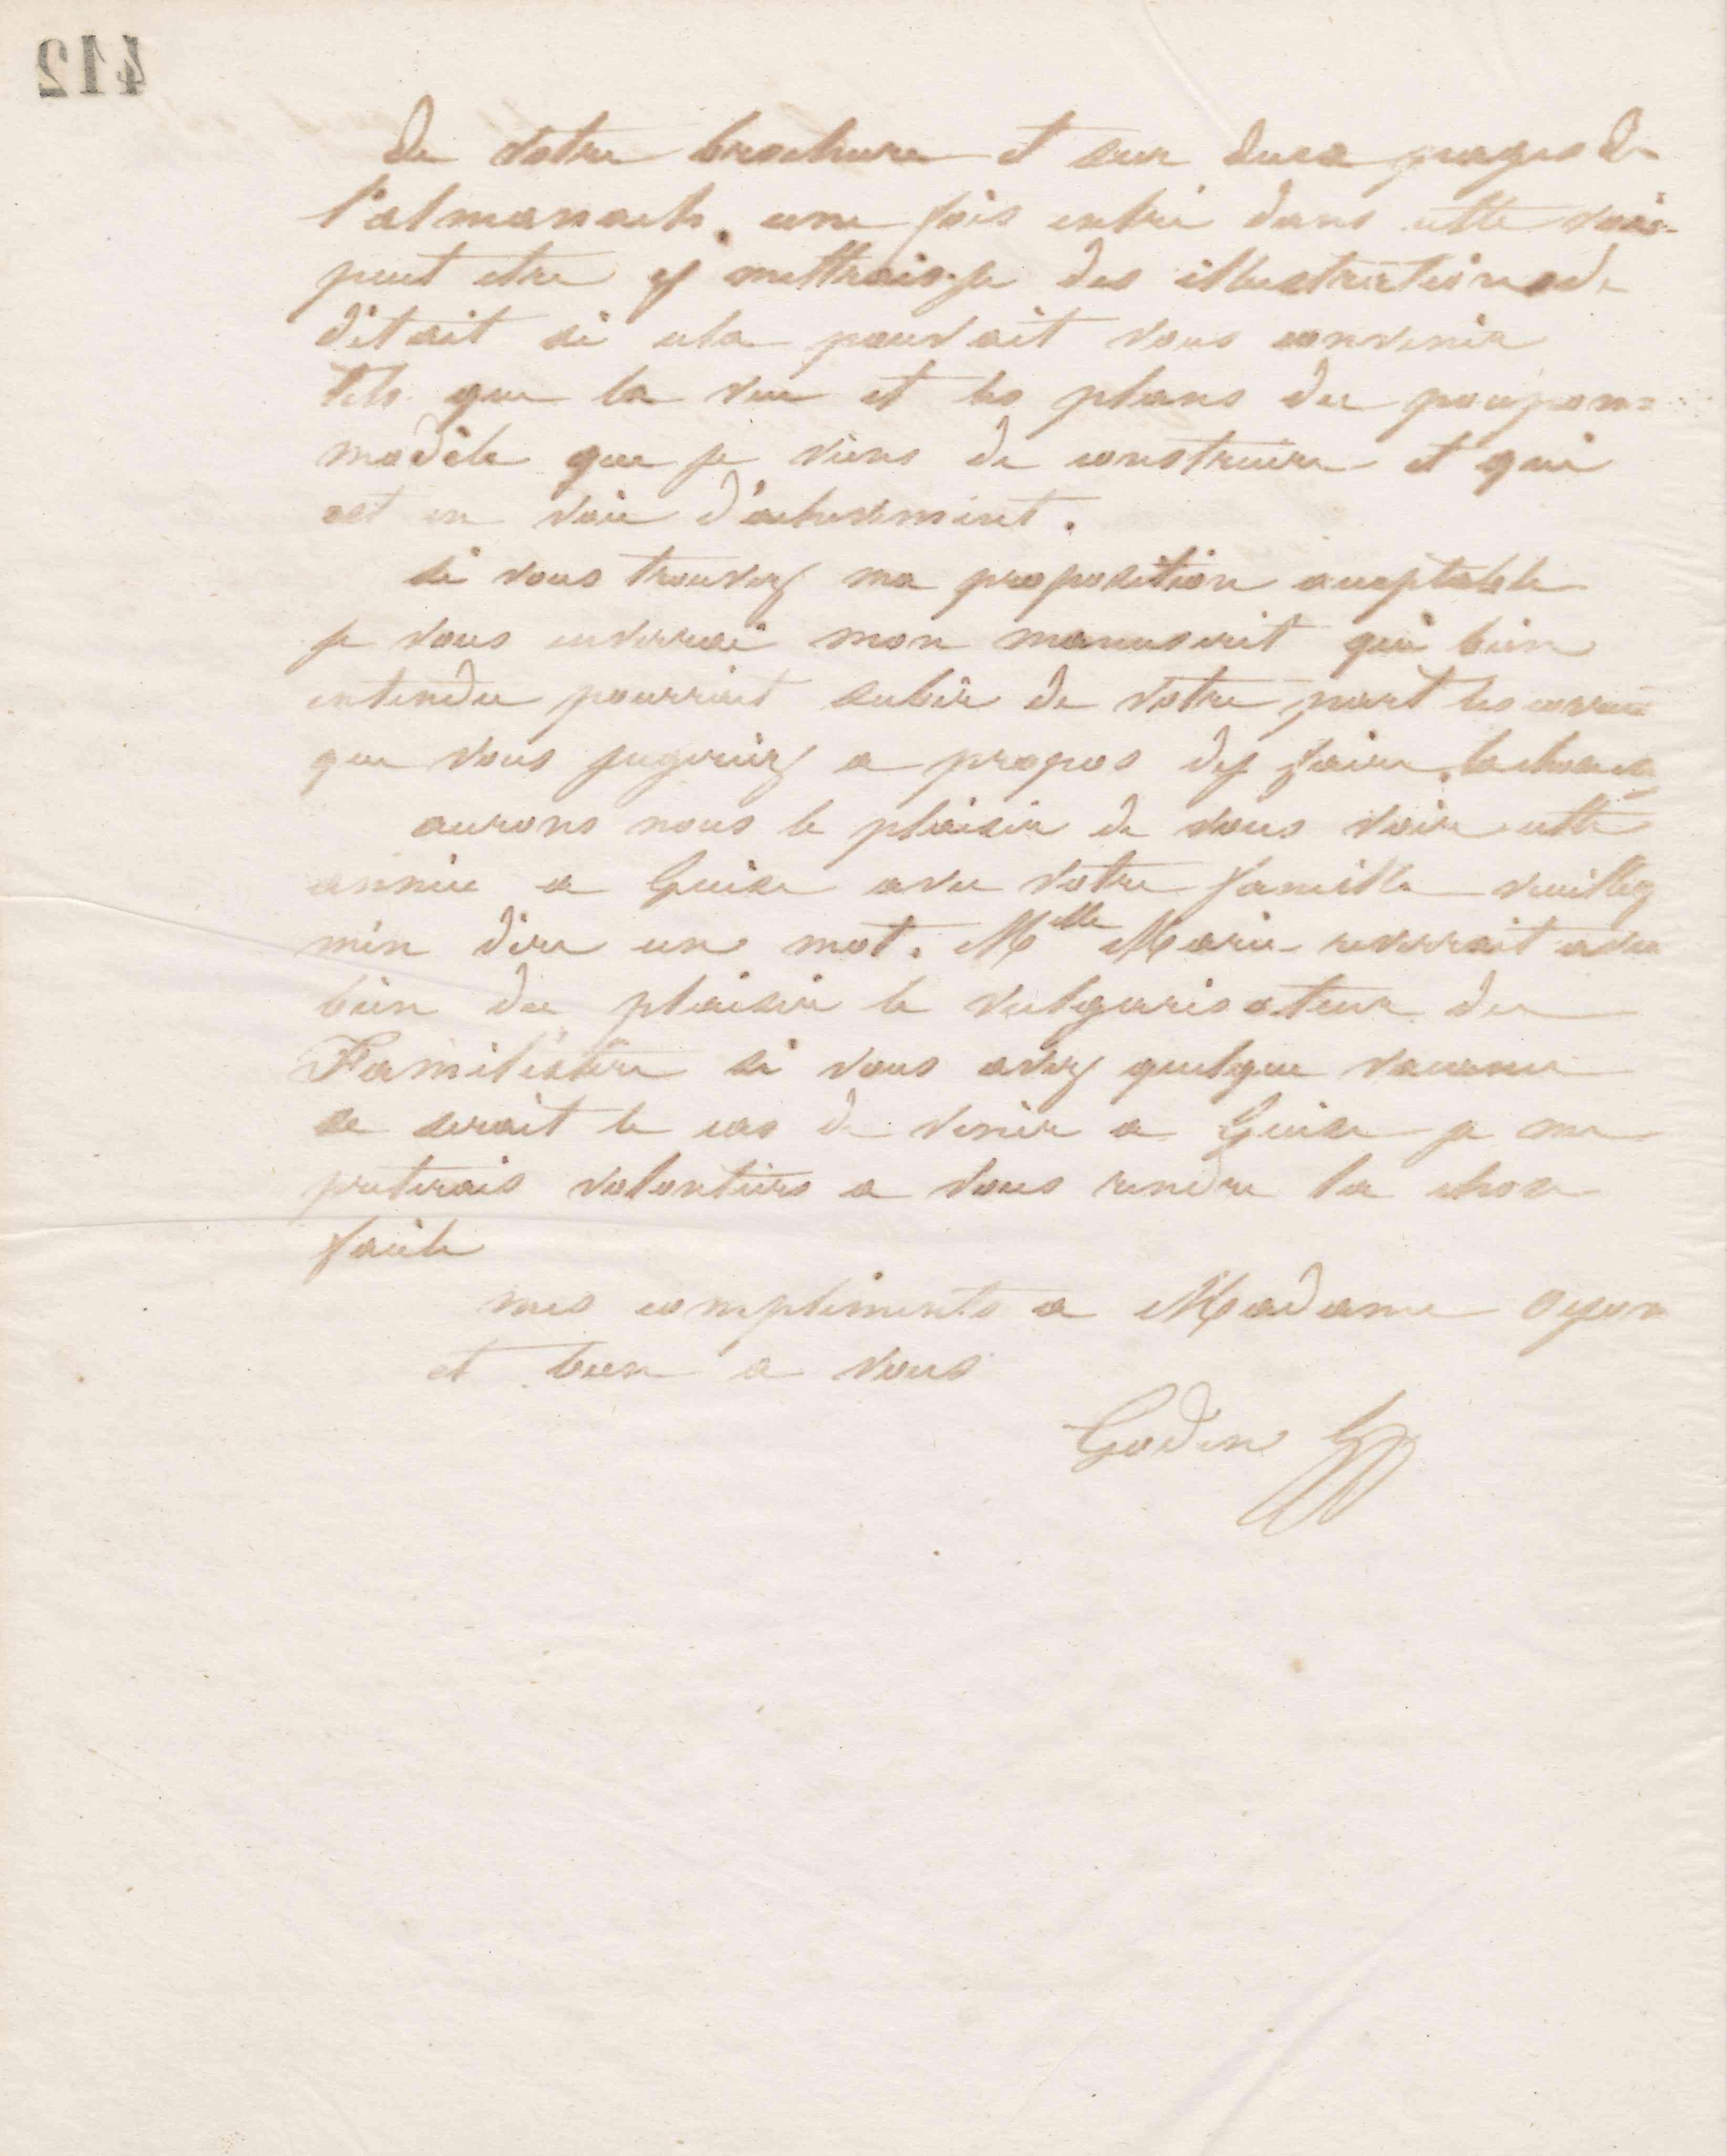 412
de votre brochure et sur deux pages de
l'almanach. une fois entré dans cette voie
peut etre y mettrais-je des illustrations de
détail si cela pouvait vous convenir
tels que la vue et les plans du poupon=
modèle que je viens de construire et qui
est en voie d'achevement.
si vous trouvez ma proposition acceptable
je vous enverrai mon manuscrit qui bien
entendu pourrait subir de votre part les
que vous jugeriez a propos d'y faire.
aurons nous le plaisir de vous voir cette
année a Guise avec votre famille veuillez
m'en dire un mot. Melle Marie reverrait avec
bien du plaisir le vulgarisateur du
Familistère si vous avez quelque vacance
se serait le cas de venir a Guise je me
preterais volontiers a vous rendre la chose
facile
mes compliments a Madame Oyon
et bien a vous
Godin